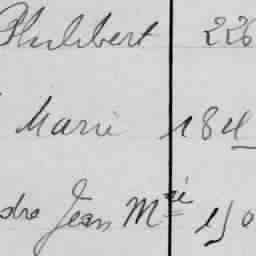 Philibert 226
Marie 184
dre Jean M^rie 190